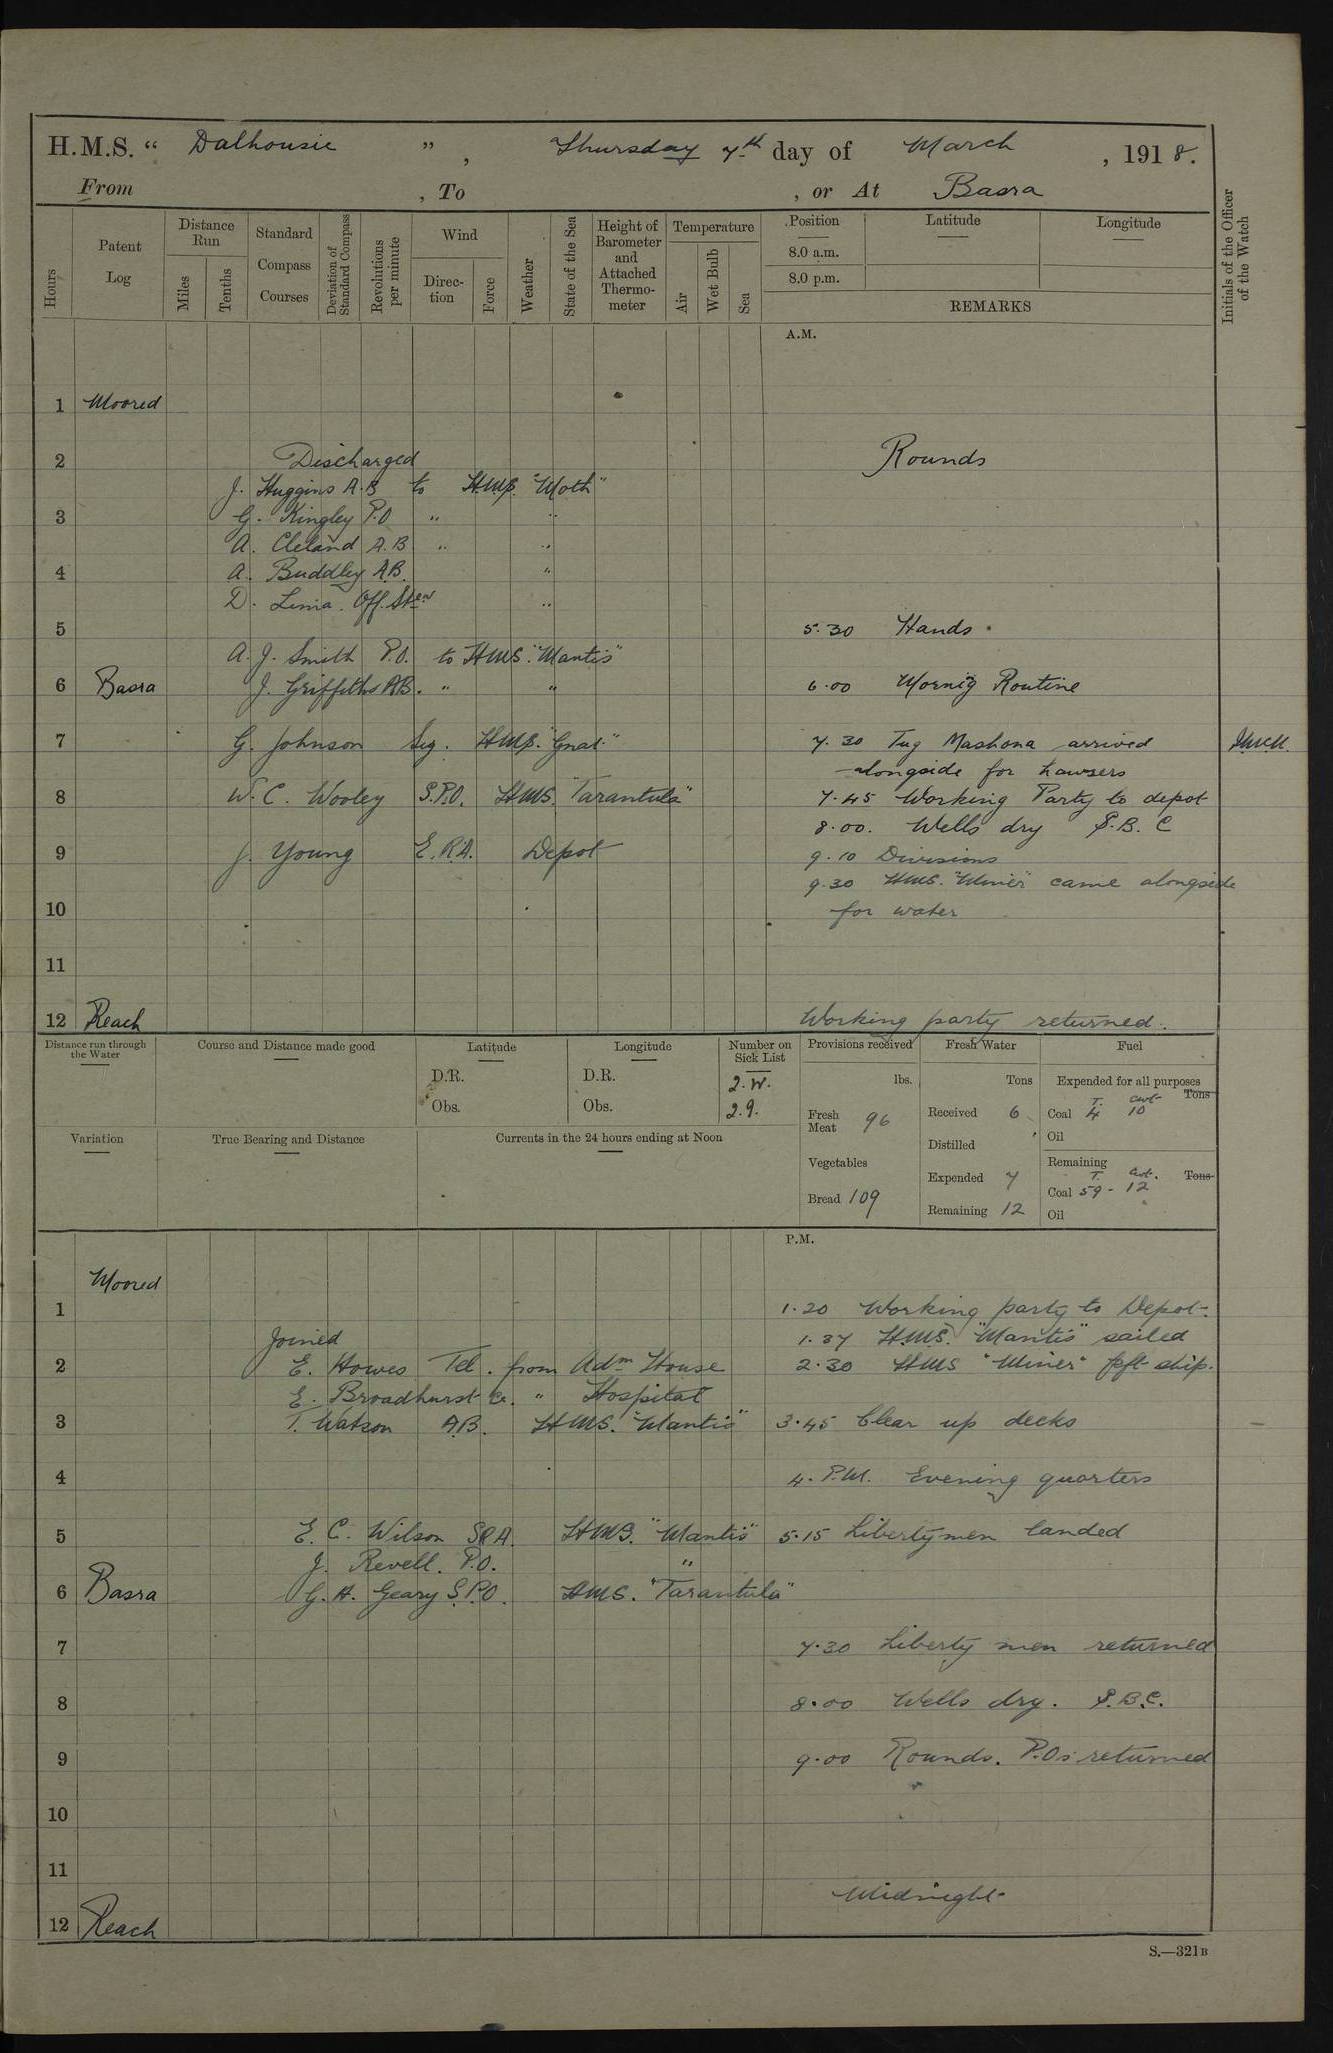 H.M.S. “ Dalhousie ” , Thursday 7th day of March , 1918.
From , To , or At Basra
Hours
Patent Log
Distance Run
Miles
Tenths
Standard Compass Courses
Deviation of Standard Compass
Revolutions per minute
Wind
Direc-tion
Force
Weather
State of the Sea
Height of Barometer and Attached Thermo-meter
Temperature
Air
Wet Bulb
Sea
Position
Latitude
Longitude
8.0 a.m.
8.0 p.m.
REMARKS
Initials of the Officer of the Watch
A.M.
1 Moored
2 Discharged Rounds
J. Huggins A.B to H.M.S. "Moth"
3 G. Kingley P.O " "
A. Cleland A.B " "
4 A. Buddley A.B. "
D. Lima. Off. Stew "
5 5.30 Hands.
A. J. Smith P.O. to H.M.S. "Mantis"
6 Basra J. Griffiths A.B. " " 6.00 Morning Routine
7 G. Johnson Sig. H.M.S. "Gnat" 7.30 Tug Mashona arrived
alongside for hawsers
8 W. C. Wooley S.P.O. H.M.S. "Tarantula" 7.45 Working Party to depot
8.00. Wells dry S.B.C
9 J. Young E.R.A. Depot 9.10 Divisions
9.30 H.M.S. "Miner" came alongside
10 for water
11
12 Reach Working party returned.
Distance run through the Water
Course and Distance made good
Latitude
D.R.
Obs.
Longitude
D.R.
Obs.
Number on Sick List
2.W.
2.9.
Provisions received
lbs.
Fresh Meat 96
Vegetables
Bread 109
Fresh Water
Tons
Received 6
Distilled
Expended 7
Remaining 12
Fuel
Expended for all purposes
T. cwt Tons
Coal 4 10
Oil
Remaining
T. Cwt. Tons
Coal 59 - 12
Oil
Variation
True Bearing and Distance
Currents in the 24 hours ending at Noon
P.M.
Moored
1 1.20 Working party to Depot.
Joined 1.37 H.M.S. "Mantis" sailed
2 E. Howes Tel. from Adm House 2.30 H.M.S "Miner" left ship.
E. Broadhurst " Hospital
3 T. Watson A.B. H.M.S. "Mantis" 3.45 Clear up decks
4 4. P.M. Evening quarters
5 E. C. Wilson H.M.S. "Mantis" 5.15 Libertymen landed
J. Revell. P.O. "
6 Basra G. H. Geary S.P.O. H.M.S. "Tarantula"
7 7.30 Liberty men returned
8 8.00 Wells dry. S.B.C.
9 9.00 Rounds. P.Os returned
10
11
Midnight
12 Reach
S.—321B